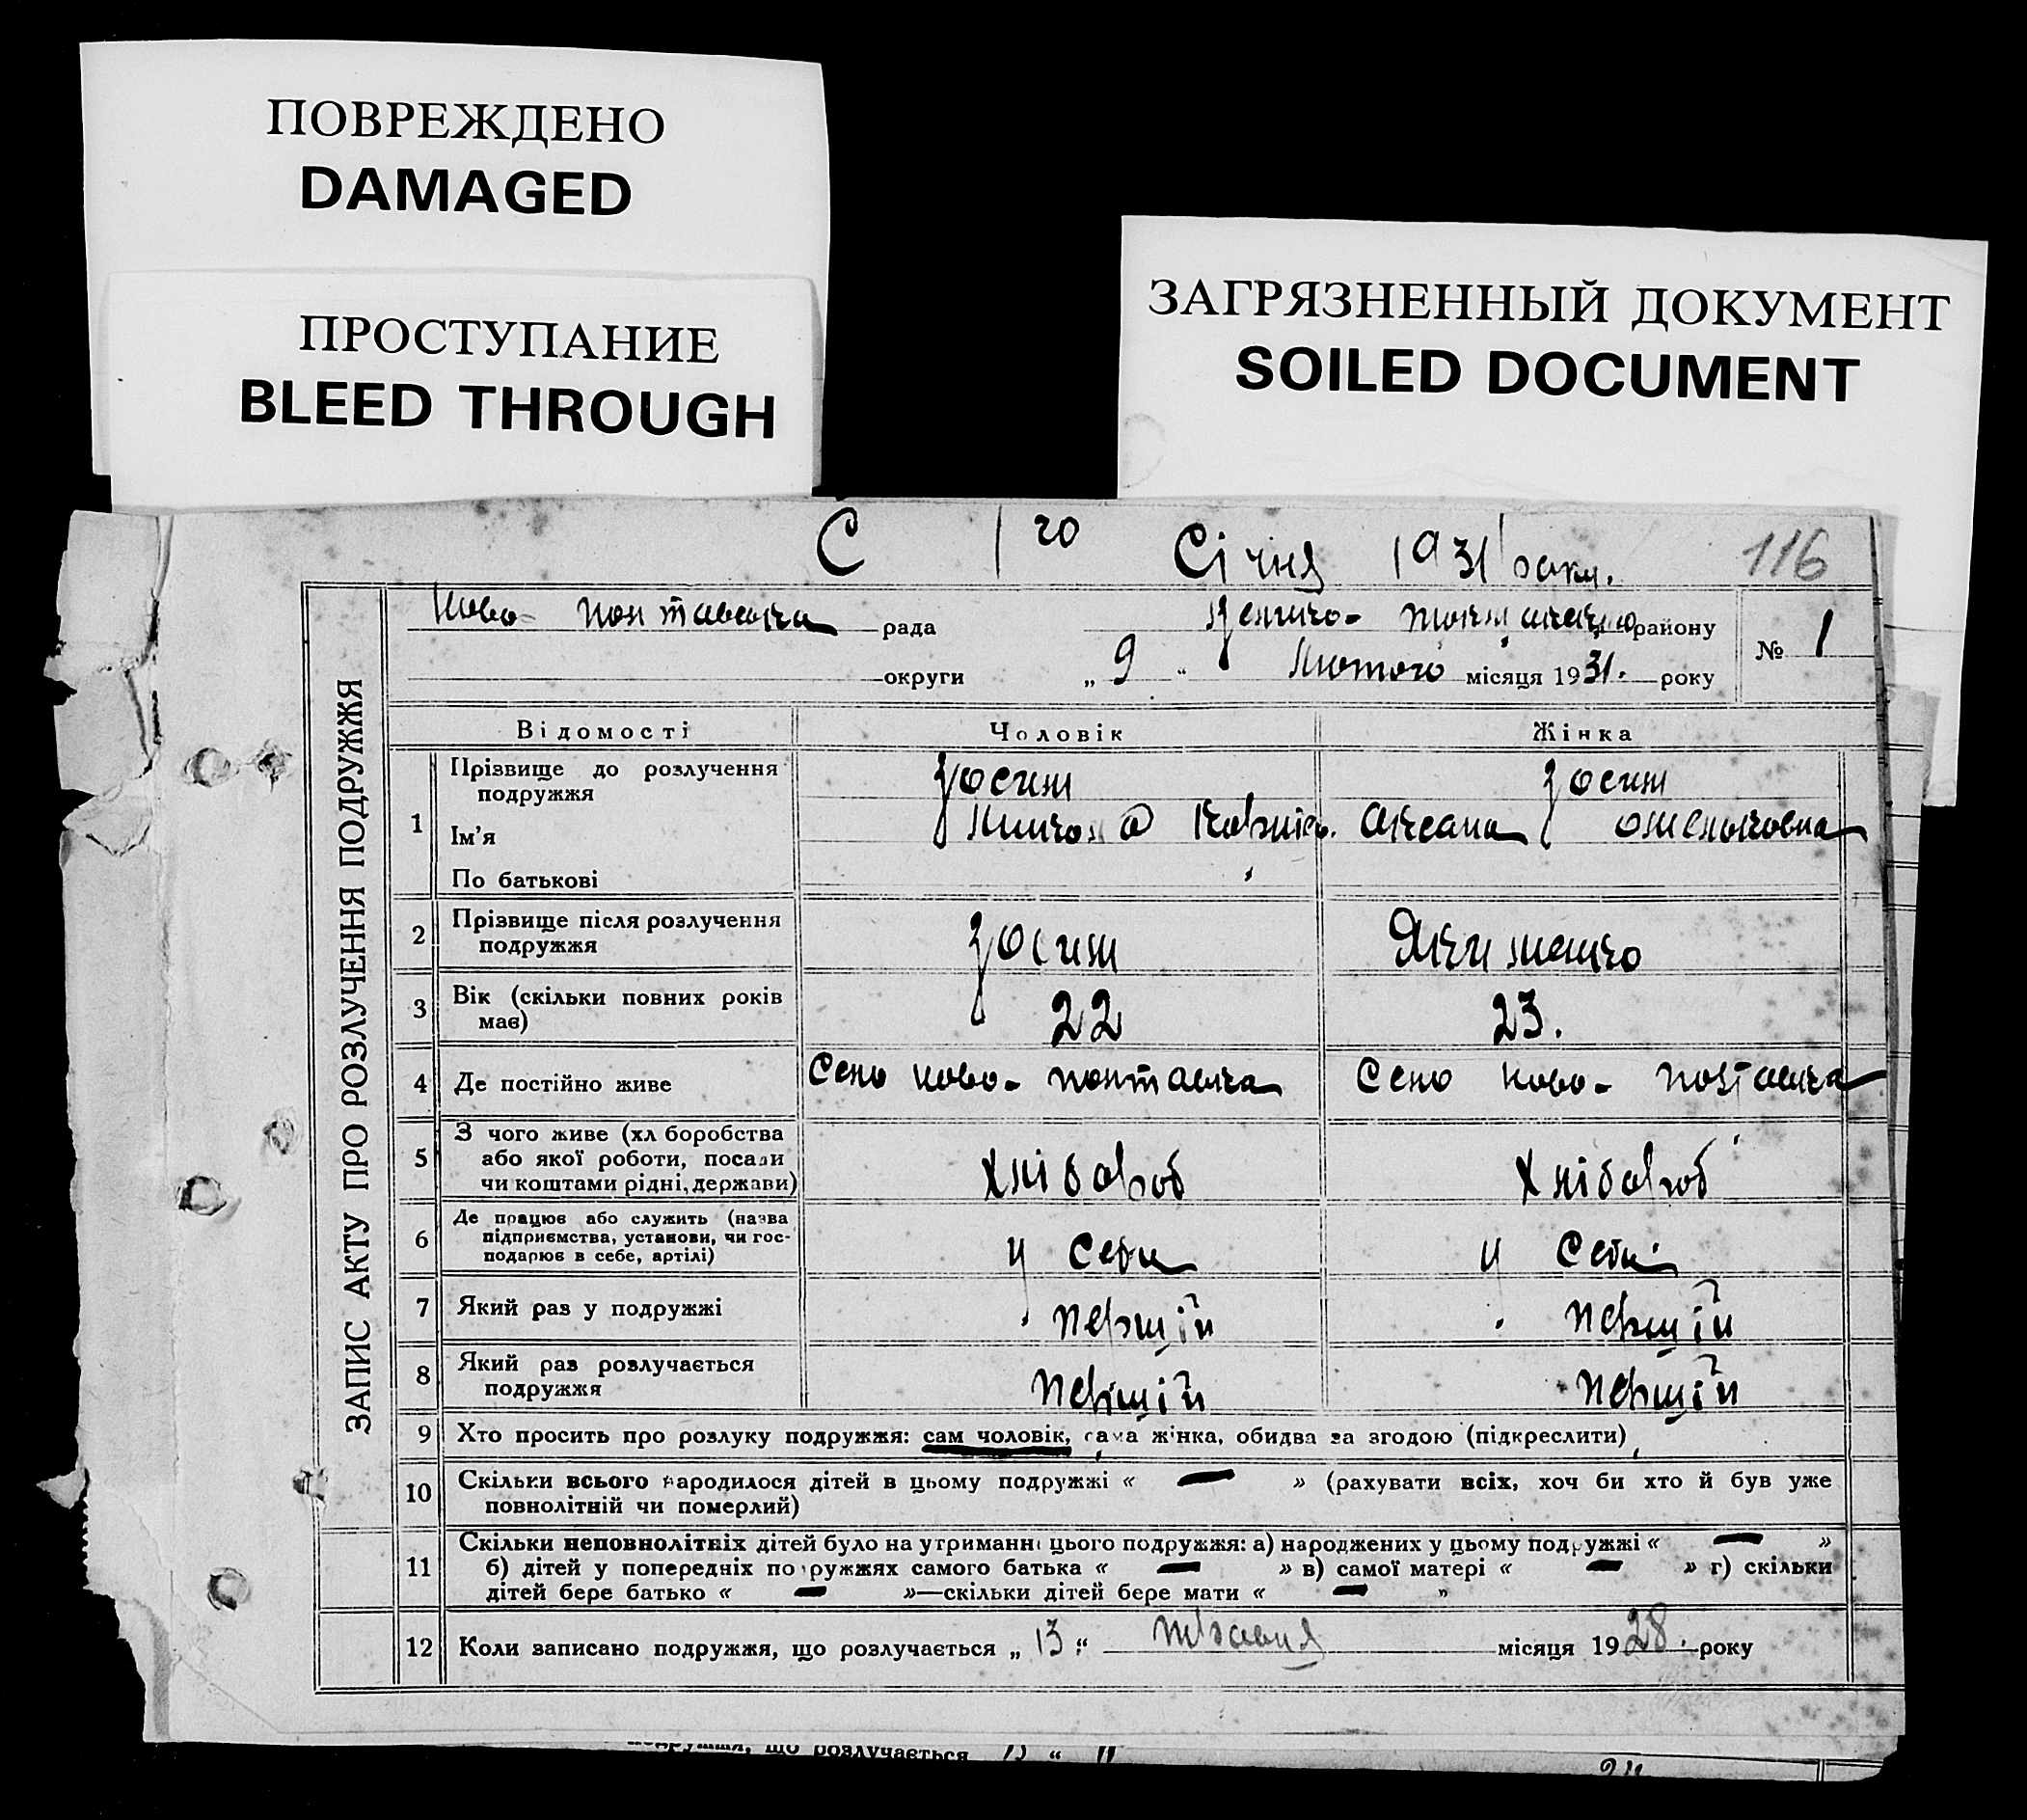 ПОВРЕЖДЕНО
DAMAGED
ПРОСТУПАНИЕ
BLEED THROUGH
ЗАГРЯЗНЕННЫЙ ДОКУМЕНТ
SOILED DOCUMENT
С 1го Січня 1931 року.
116
ЗАПИС АКТУ ПРО РОЗЛУЧЕННЯ ПОДРУЖЖЯ
Ново-Полтавська рада району
№ 1
округи „ 9 “ Лютого місяця 1931. року
Відомості Чоловік Жінка
1 Прізвище до розлучення
подружжя
Ім'я Оксана
По батькові
2 Прізвище після розлучення
подружжя Якименко
3 Вік (скільки повних років
має) 22 23.
4 Де постійно живе Село Ново-Полтавка Село Ново-Полтавка
5 З чого живе (хл боробства
або якої роботи, посади
чи коштами рідні, держави) Хлібороб Хлібороб
6 Де працює або служить (назва
підприємства, установи, чи гос-
подарює в себе, артілі) У Себе У Себе
7 Який раз у подружжі Перший Перший
8 Який раз розлучається
подружжя Перший Перший
9 Хто просить про розлуку подружжя: сам чоловік, сама жінка, обидва за згодою (підкреслити)
10 Скільки всього народилося дітей в цьому подружжі « — » (рахувати всіх, хоч би хто й був уже
повнолітній чи померлий)
11 Скільки неповнолітніх дітей було на утриманні цього подружжя: а) народжених у цьому подружжі « — »
б) дітей у попередніх подружжях самого батька « — » в) самої матері « — » г) скільки
дітей бере батько « — »—скільки дітей бере мати « — »
12 Коли записано подружжя, що розлучається „ 13 “ Травня місяця 1928. року
подружжя, що розлучається